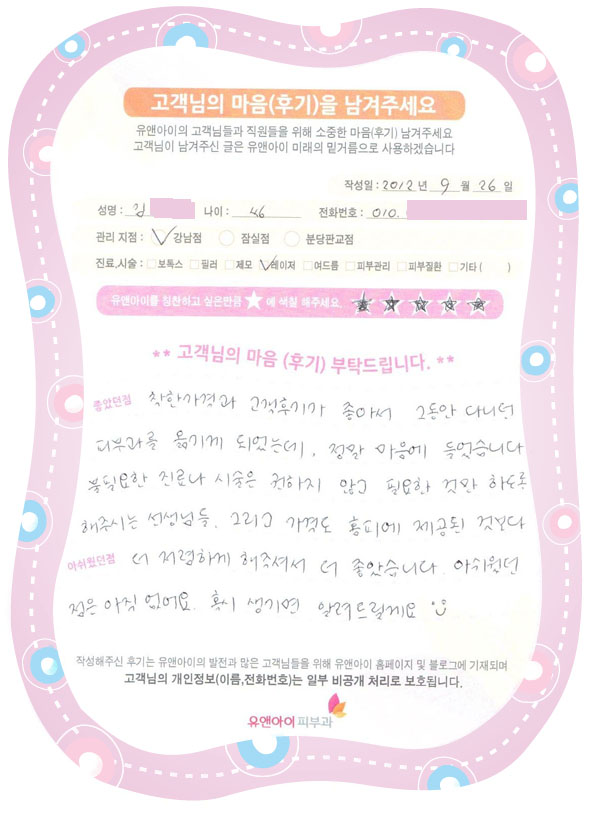 고객님의 마음(후기)을 남겨주세요
유앤아이의 고객님들과 직원들을 위해 소중한 마음(후기) 남겨주세요
고객님이 남겨주신 글은 유앤아이 미래의 밑거름으로 사용하겠습니다
작성일 : 2012 년 9 월 26 일
성명 : 김 나이 : 46 전화번호 : 010.
관리 지점 : 강남점 잠실점 분당판교점
진료,시술 : 보톡스 필러 제모 레이저 여드름 피부관리 피부질환 기타 ( )
유앤아이를 칭찬하고 싶은만큼 ★ 에 색칠 해주세요. ★ ★ ★ ★ ★
** 고객님의 마음 (후기) 부탁드립니다. **
좋았던점 착한가격과 고객후기가 좋아서 그동안 다니던
피부과를 옮기게 되었는데, 정말 마음에 들었습니다
불필요한 진료나 시술은 권하지 않고 필요한 것만 하도록
해주시는 선생님들. 그리고 가격도 홈피에 제공된 것보다
아쉬웠던점 더 저렴하게 해주셔서 더 좋았습니다. 아쉬웠던
점은 아직 없어요. 혹시 생기면 알려드릴께요
작성해주신 후기는 유앤아이의 발전과 많은 고객님들을 위해 유앤아이 홈페이지 및 블로그에 기재되며
고객님의 개인정보(이름,전화번호)는 일부 비공개 처리로 보호됩니다.
유앤아이피부과